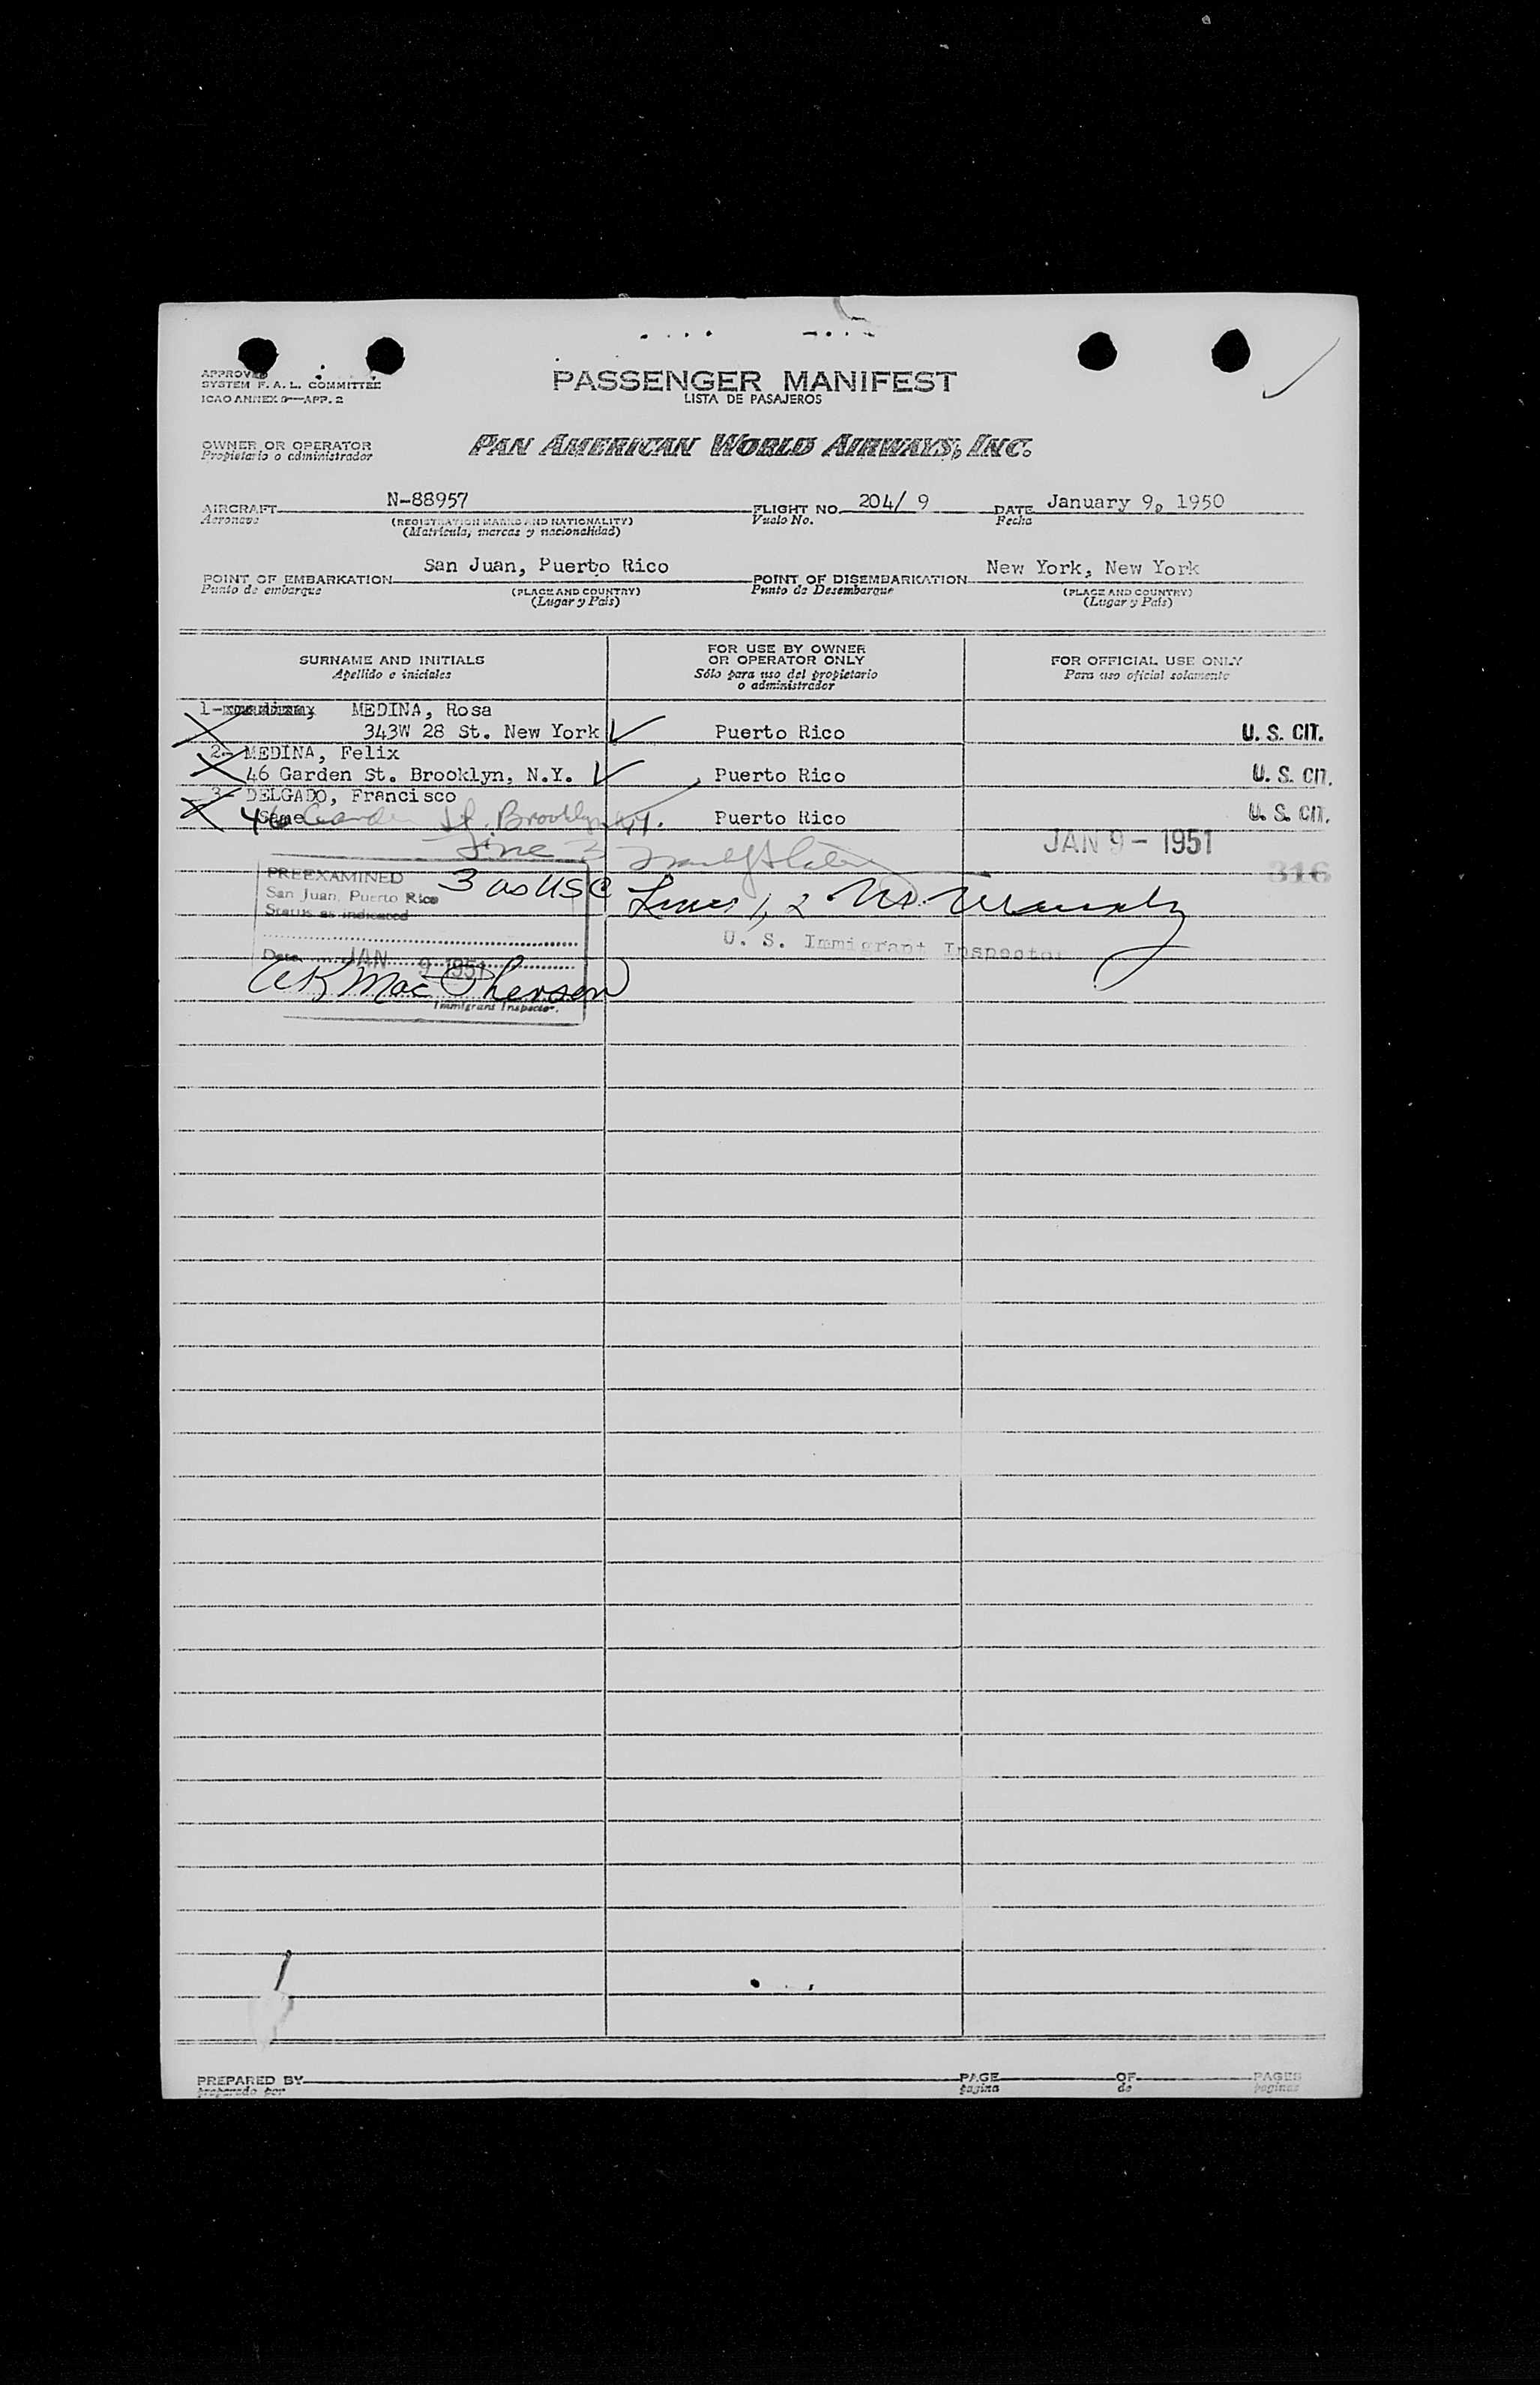 APPROVED
SYSTEM F. A. L. COMMITTEE
ICAO ANNEX 9—APP. 2
PASSENGER MANIFEST
LISTA DE PASAJEROS
OWNER OR OPERATOR
Propietario o administrador
PAN AMERICAN WORLD AIRWAYS, INC.
AIRCRAFT N-88957 FLIGHT NO. 204/ 9 DATE January 9, 1950
Aeronave (REGISTRATION MARKS AND NATIONALITY) Vuelo No. Fecha
(Matrícula, marcas y nacionalidad)
POINT OF EMBARKATION San Juan, Puerto Rico POINT OF DISEMBARKATION New York, New York
Punto de embarque (PLACE AND COUNTRY) Punto de Desembarque (PLACE AND COUNTRY)
(Lugar y País) (Lugar y País)
SURNAME AND INITIALS FOR USE BY OWNER OR OPERATOR ONLY FOR OFFICIAL USE ONLY
Apellido e iniciales Sólo para uso del propietario o administrador Para uso oficial solamente
1- MEDINA, Rosa
343W 28 St. New York Puerto Rico U. S. CIT.
2- MEDINA, Felix
46 Garden St. Brooklyn, N.Y. Puerto Rico U. S. CIT.
3- DELGADO, Francisco
Same 46 Garden St. Brooklyn N.Y. Puerto Rico U. S. CIT.
JAN 9 - 1951
Line 3
316
PREEXAMINED 3 as USC
San Juan, Puerto Rico
Status as indicated
Lines 1, 2
U. S. Immigrant Inspector
Date JAN 9 1951
A K MacPherson
Immigrant Inspector.
PREPARED BY PAGE OF PAGES
preparado por pagina de paginas